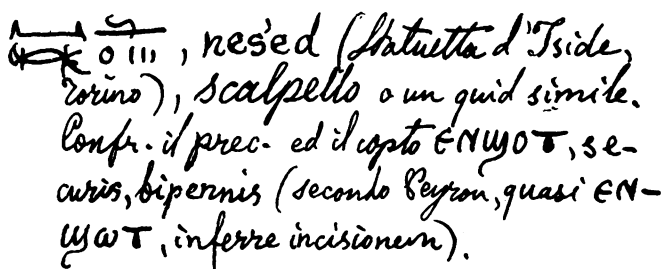 , nes'ed (Statuetta d'Iside,
Torino), scalpello o un quid simile.
Confr. il prec. ed il copto ⲉⲛϣⲟⲧ, se-
curis, bipennis (secondo Peyron, quasi ⲉⲛ-
ϣⲱⲧ, inferre incisionem).